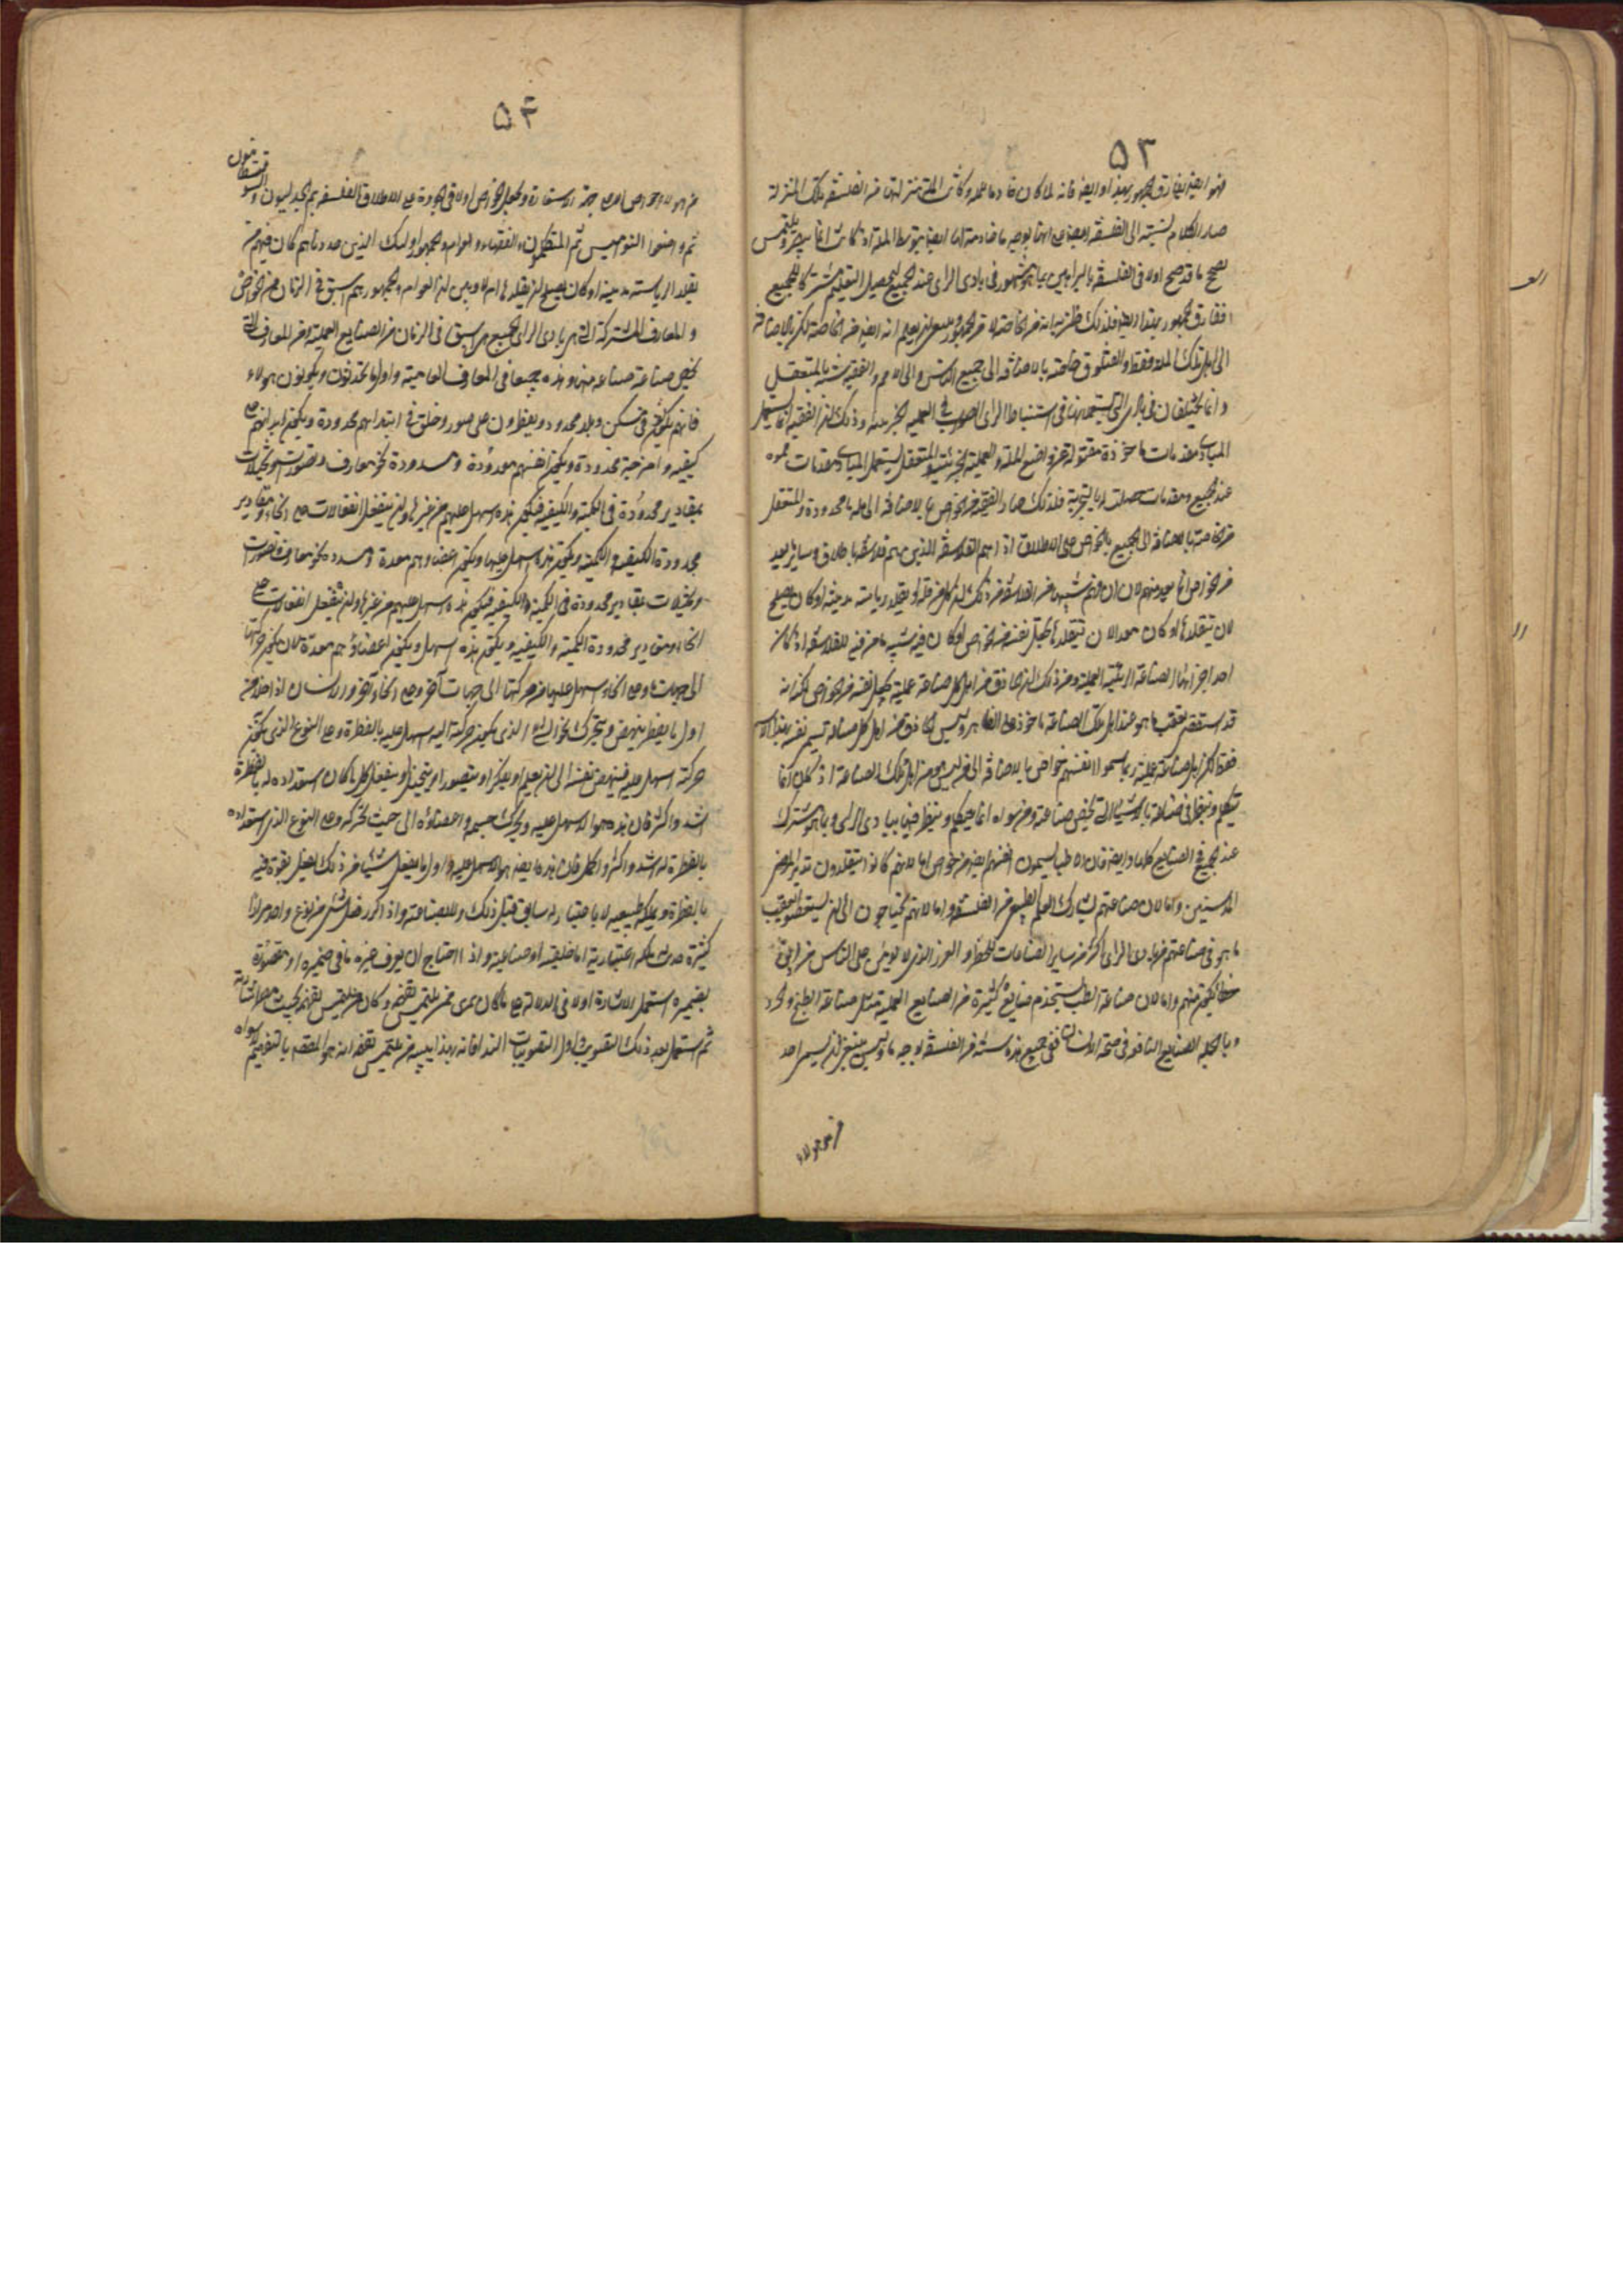 ٥٣
فهو ايضا يفارق الجمهور بهذا وايضا فانه لما كان خادما لملة وكانت الملة منزلتها من الفلسفة تلك المنزلة
صار الكلام نسبته الى الفلسفة ايضا على انها بوجه ما خادمة لها ايضا بتوسط الملة اذ كانت انما ينصر ويلتمس
تصحيح ما قد صح اولا في الفلسفة بالبراهين بما هو مشهور في بادى الراى عند الجميع ليحصل التعليم مشتركا للجميع
ففارق الجمهور بهذا ايضا فلذلك ظن به انه من الخاصة لا من الجمهور وينبغى ان يعلم انه ايضا من الخاصة لكن بالاضافة
الى اهل تلك الملة فقط والفيلسوف خاصته بالاضافة الى جميع الناس والى الامم والفقيه يتشبه بالمتعقل
وانما يختلفان في مبادى الراى التى يستعملانها في استنباط الراى الصواب في العملية الجزئية وذلك ان الفقيه انما يستعمل
المبادى مقدمات ماخوذة منقولة عن واضع الملة في العملية الجزئية والمتعقل يستعمل المبادى مقدمات مشهورة
عند الجميع ومقدمات حصلت له بالتجربة فلذلك صار الفقيه من الخواص بالاضافة الى ملة ما محدودة والمتعقل
من الخاصة بالاضافة الى الجميع فالخواص على الاطلاق اذا هم الفلاسفة الذين هم فلاسفة باطلاق وساير من يعد
من الخواص انما يعد منهم لان فيهم شبها من الفلاسفة من ذلك ان كل من قلد او تقلد رياسة مدنية او كان يصلح
لان يتقلدها او كان معدا لان يتقلدها يجعل نفسه من الخواص اذ كان فيه شبه ما من الفلسفة اذ كان
احد اجزائها الصناعة الرئيسة العملية ومن ذلك ان الحاذق من اهل كل صناعة عملية يجعل نفسه من الخواص لكن انه
قد استقصى تعقب ما هو عند اهل تلك الصناعة ماخوذ على الظاهر وليس الحاذق من اهل كل صناعة يسمى نفسه بهذا الاسم
فقط لكن اهل صناعة عملية ربما سموا انفسهم خواص بالاضافة الى من ليس من اهل تلك الصناعة اذ كان انما
يتكلم وينظر في صناعته بالاشياء التى تخص صناعته ومن سواه انما يتكلم وينظر فيها ببادى الراى وما هو مشترك
عند الجميع في الصنايع كلها وايضا فان الاطباء يسمون انفسهم ايضا من الخواص اما لانهم كانوا يتقلدون تدبير المرضى
المدنفين واما لان صناعتهم تشارك العلم الطبيعى من الفلسفة واما لانهم يحتاجون الى ان يستقصوا تعقب
ما هو في صناعتهم من بادى الراى اكثر من ساير الصناعات للخطر والضرر الذى لا يومن على الناس من اقل
خطا يكون منهم واما لان صناعة الطب تستخدم صنايع كثيرة من الصنايع العملية مثل صناعة الطبخ والحرد
وبالجملة الصنايع النافعة في صحة الانسان ففى جميع هذه شبه من الفلسفة بوجه ما وليس ينبغى ان يسمى احد
من هولاء
٥٤
من هولاء خواص الا على جهة الاستعارة ويجعل الخواص اولا وفي الجودة على الاطلاق الفلاسفة ثم الجدليون و
السوفسطائيون
ثم واضعوا النواميس ثم المتكلمون والفقهاء والعوام والجمهور اولئك الذين حددناهم كان فيهم من
تقلد رياسة مدنية او كان يصلح ان يقلدها ام لا وبين ان العوام والجمهور هم اسبق في الزمان من الخواص
والمعارف المشتركة التى هى بادى راى الجميع هى اسبق في الزمان من الصنايع العملية ومن المعارف التى
تخص صناعة صناعة منها وهذه جميعا هى المعارف العامية واول ما يحدثون ويكونون هولاء
فانهم يكونون في مسكن وبلد محدود ويفطرون على صور وخلق في ابدانهم محدودة ويكون ابدانهم على
كيفية وامزجة محدودة ويكون انفسهم معدودة ومسددة نحو معارف وتصورات وتخيلات
بمقادير محدودة في الكمية والكيفية فيكون هذه اسهل عليهم من غيرها وان ينفعل انفعالات على انحاء ومقادير
محدودة الكيفية والكمية ويكون هذه اسهل عليها ويكون اعضاوهم معدة ومسددة نحو معارف وتصورات
وتخيلات بمقادير محدودة في الكمية والكيفية فيكون هذه اسهل عليهم من غيرها وان ينفعل انفعالات على
انحاء ومقادير محدودة الكمية والكيفية ويكون هذه اسهل ويكون اعضاؤهم معدة لان يكون حركتها
الى جهات ما وعلى انحاء اسهل عليها من حركتها الى جهات اخر وعلى انحاء اخر والانسان اذا خلا من
اول ما يفطر ينهض ويتحرك نحو الشئ الذى يكون حركته اليه اسهل عليه بالفطرة وعلى النوع الذى يكون
حركته اسهل عليه فينهض نفسه الى ان يعلم او يفكر او يتصور او يتخيل او يتعقل كل ما كان استعداده له بالفطرة
اشد واكثر فان هذا هو الاسهل عليه ويحرك جسمه واعضاؤه الى حيث تحركه وعلى النوع الذى استعداده
بالفطرة له اشد واكثر واكمل فان هذا ايضا هو الاسهل عليه واول ما يفعل شيئا من ذلك يفعل بقوة فيه
بالفطرة وبملكة طبيعية لا باعتياد له سابق قبل ذلك ولا بصناعة واذا كرر فعل شئ من نوع واحد مرارا
كثيرة حدثت له ملكة اعتيادية اما خلقية او صناعية واذا احتاج ان يعرف غيره ما في ضميره او مقصوده
بضميره استعمل الاشارة اولا في الدلالة على ما كان يريد ممن يلتمس تفهيمه اذا كان من يلتمس تفهيمه بحيث يبصر اشارته
ثم استعمل بعد ذلك التصويت واول التصويتات النداء فانه بهذا ينتبه من يلتمس تفهيمه انه هو المقصود بالتفهيم لا سواه